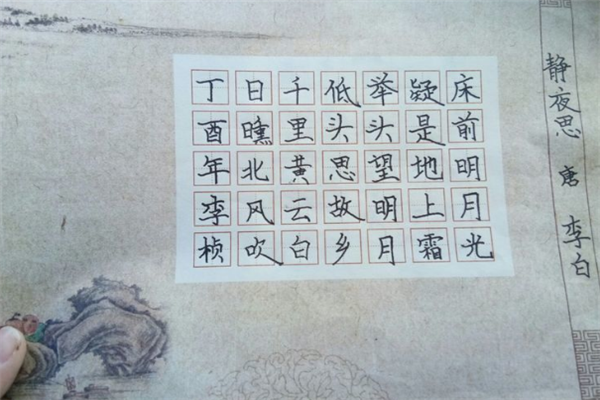 静夜思 唐 李白
床前明月光
疑是地上霜
举头望明月
低头思故乡
千里黄云白
日曛北风吹
丁酉年李桢